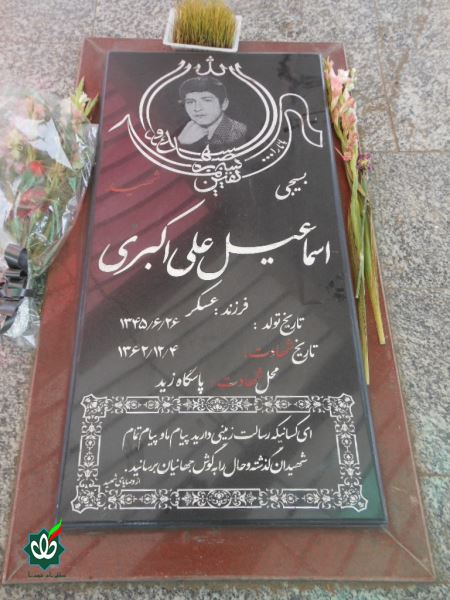 شهید
بسیجی
اسماعیل علی اکبری
فرزند : عسکر
تاریخ تولد : ۱۳۴۵/۶/۲۶
تاریخ شهادت : ۱۳۶۲/۱۲/۴
محل شهادت : پاسگاه زید
ای کسانیکه رسالت زینبی دارید پیام ما و پیام تمام
شهیدان گذشته و حال را به گوش جهانیان برسانید
از وصایای شهید